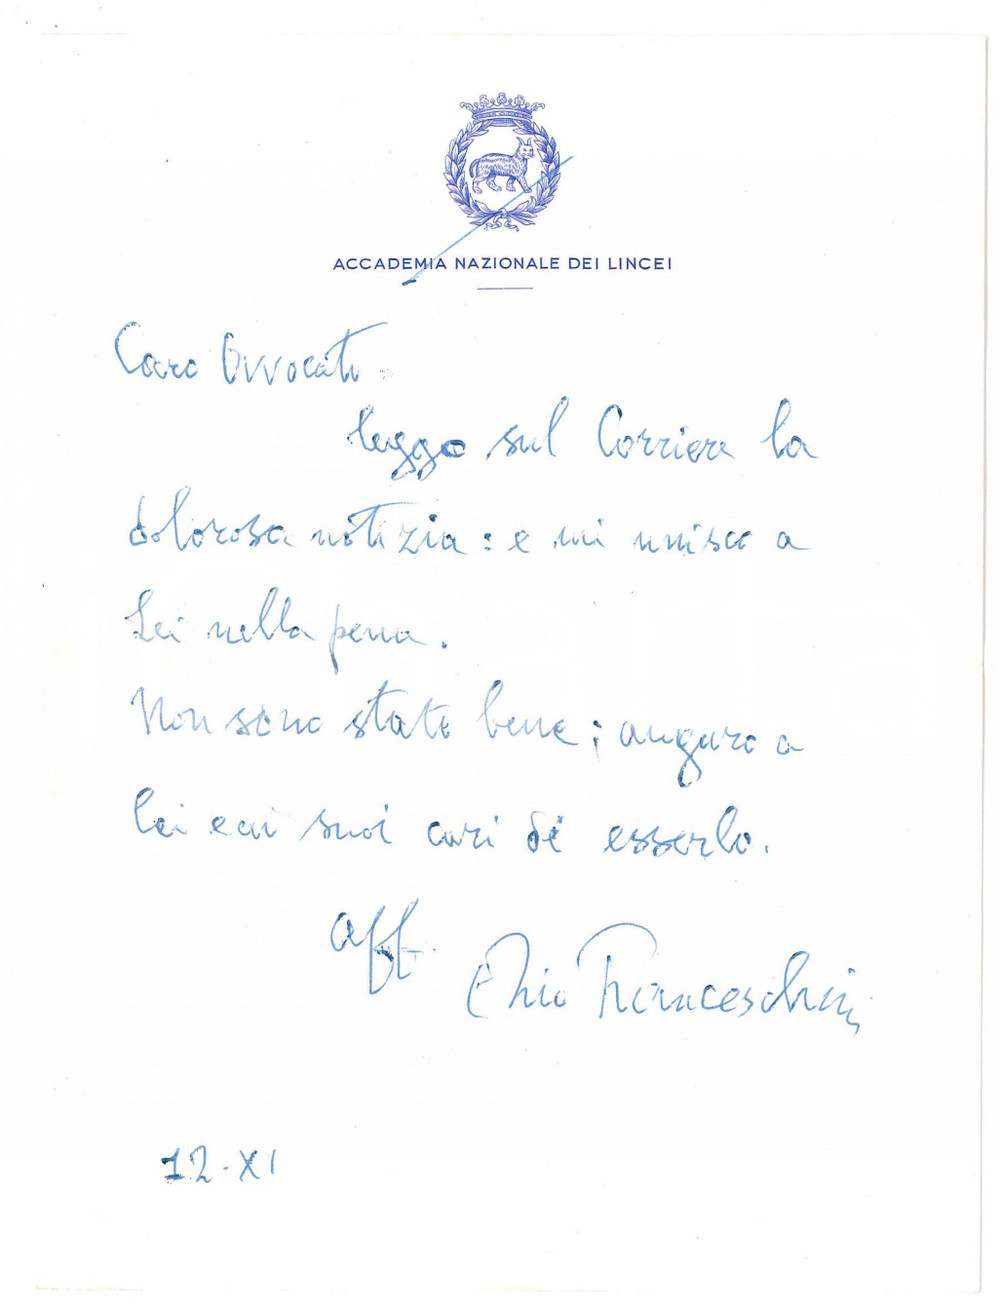 ACCADEMIA NAZIONALE DEI LINCEI
Caro Avvocato
leggo sul Corriere la
dolorosa notizia: e mi unisco a
Lei nella pena.
Non sono stato bene; auguro a
lei e ai suoi cari di esserlo.
aff.
Ezio Franceschini
12-XI